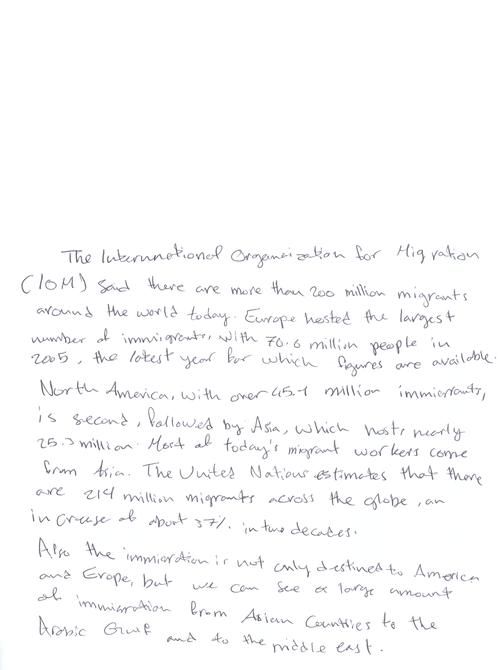 The International Organaization for Migration
(IOM) said there are more than 200 million migrants
around the world today. Europe hosted the largest
number of immigrants, with 70.6 million people in
2005, the latest year for which figures are available.
North America, with over 45.1 million immigrants,
is second, followed by Asia, which hosts nearly
25.3 million. Most of today's migrant workers come
from Asia. The United Nations estimates that there
are 214 million migrants across the globe, an
increase of about 37% in two decades.
Also the immigration is not only destined to America
and Erope, but we can see a large amount
of immigration from Asian Countries to the
Arabic Gulf and to the middle east.